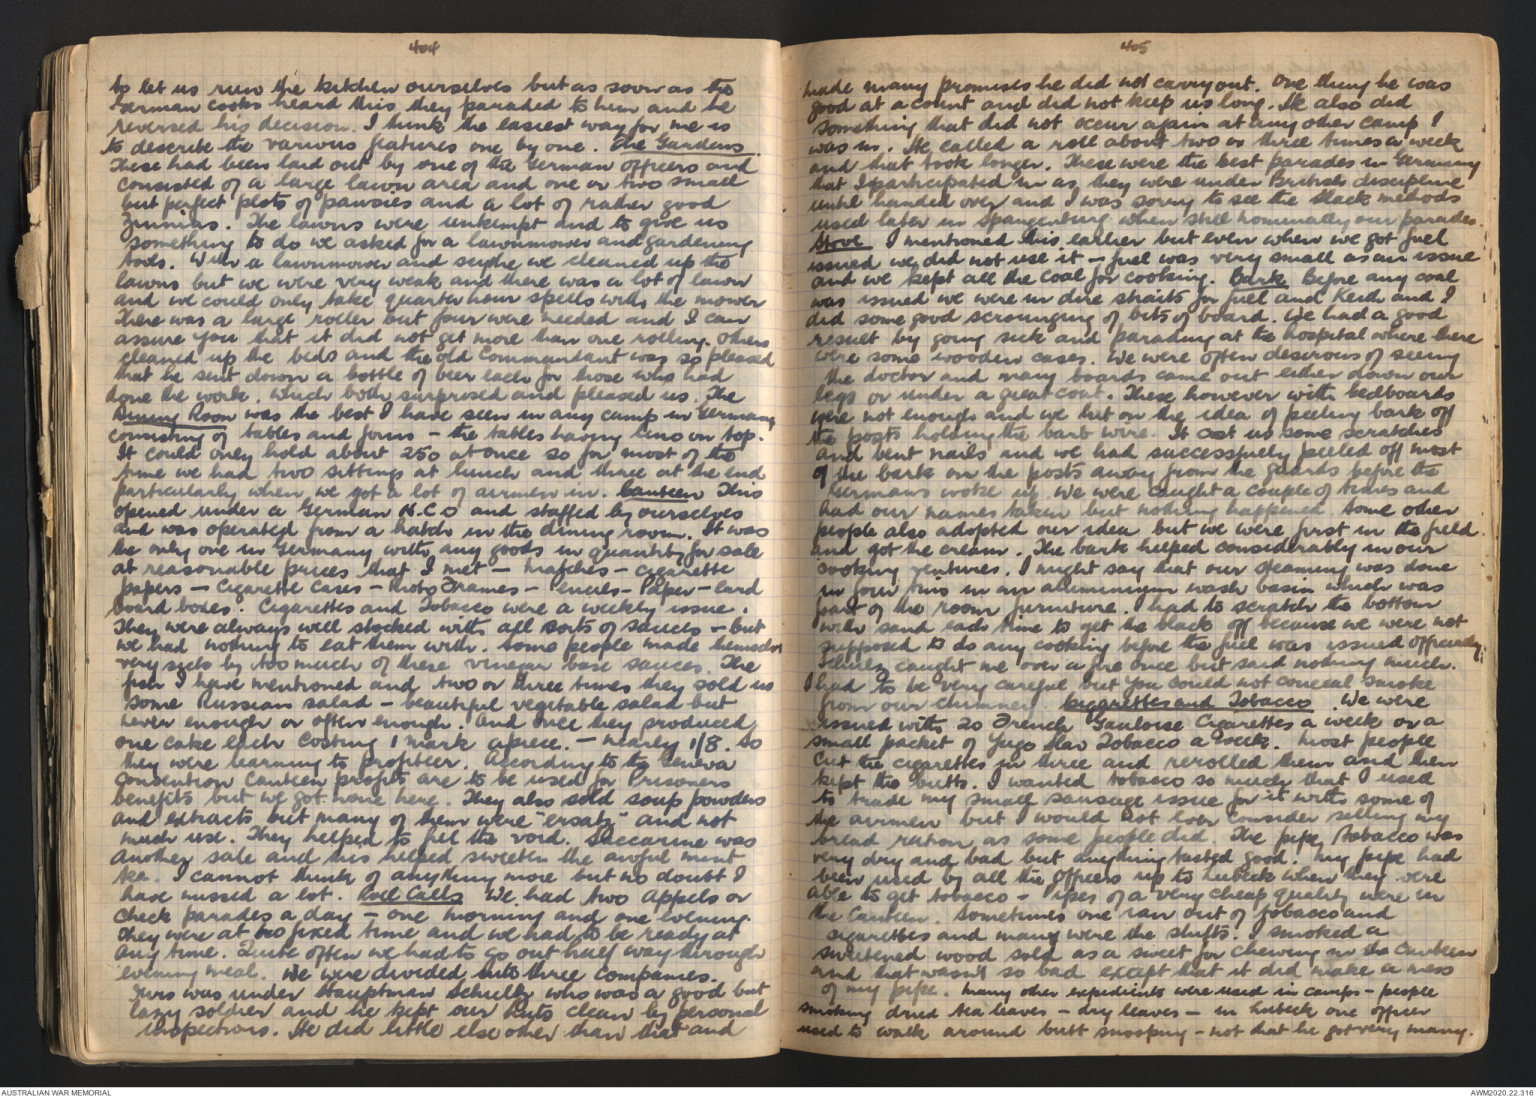 404
to let us run the kitchen ourselves but as soon as the
German cooks heard this they paraded to him and he
reversed his decision. I think the easiest way for me is
to describe the various features one by one. The Gardens.
These had been laid out by one of the German officers and
consisted of a large lawn area and one or two small
but perfect plots of pansies and a lot of rather good
Zinnias. The lawns were unkempt and to give us
something to do we asked for a lawnmower and gardening
tools. With a lawnmower and scythe we cleaned up the
lawns but we were very weak and there was a lot of lawn
and we could only take quarter hour spells with the mower
There was a large roller but four were needed and I can
assure you that it did not get more than one rolling. Others
cleaned up the beds and the old Commandant was so pleased
that he sent down a bottle of beer each for those who had
done the work. Which both surprised and pleased us. The
Dining Room was the best I have seen in any camp in Germany
consisting of tables and forms - the tables having lino on top.
It could only hold about 250 at once so for most of the
time we had two sittings at lunch and three at the end
particularly when we got a lot of airmen in. Canteen This
opened under a German N.C.O and staffed by ourselves
and was operated from a hatch in the dining room. It was
the only one in Germany with any goods in quantity for sale
at reasonable prices that I met - Matches - Cigarette
papers - Cigarette Cases - Photo Frames - Pencils - Paper - Card
board boxes. Cigarettes and Tobacco were a weekly issue.
They were always well stocked with all sorts of sauces - but
we had nothing to eat them with. Some people made themselves
very sick by too much of these vinegar base sauces. The
fish I have mentioned and two or three times they sold us
some Russian salad - beautiful vegetable salad but
never enough or often enough. And once they produced
one cake each costing 1 mark apiece. - nearly 1/8. So
they were learning to profiteer. According to the Geneva
Convention Canteen profits are to be used for Prisoners
benefits but we got none here. They also sold soup powders
and extracts but many of them were "ersatz" and not
much use. They helped to fill the void. Saccarine was
another sale and this helped sweeten the awful mint
tea. I cannot think of anything more but no doubt I
have missed a lot. Roll Calls We had two Appels or
check parades a day - one morning and one evening.
They were at no fixed time and we had to be ready at
any time. Quite often we had to go out half way through
evening meal. We were divided into three Companies.
Ours was under Hauptman Schultz who was a good but
lazy soldier and he kept our huts clean by personal
inspections. He did little else other than that and
405
made many promises he did not carry out. One thing he was
good at a count and did not keep us long. He also did
something that did not occur again at any other camp I
was in. He called a roll about two or three times a week
and that took longer. These were the best parades in Germany
that I participated in as they were under British discipline
until handed over and I was sorry to see the slack methods
used later in Spangenburg when still nominally our parades.
Stove I mentioned this earlier but even when we got fuel
issued we did not use it - fuel was very small as an issue
and we kept all the coal for cooking. Bark Before any coal
was issued we were in dire straits for fuel and Keith and I
did some good scrounging of bits of board. We had a good
result by going sick and parading at the hospital where there
were some wooden cases. We were often desirous of seeing
the doctor and many boards came out either down our
legs or under a great coat. These however with bedboards
were not enough and we hit on the idea of peeling bark off
the posts holding the barb wire. It cost us some scratches
and bent nails and we had successfully peeled off most
of the bark on the posts away from the guards before the
Germans woke up. We were caught a couple of times and
had our names taken but nothing happened. Some other
people also adopted our idea but we were first in the field
and got the cream. The bark helped considerably in our
cooking ventures. I might say that our steaming was done
in four tins in an aluminium wash basin which was
part of the room furniture. I had to scratch the bottom
with sand each time to get the black off because we were not
supposed to do any cooking before the fuel was issued officially
Schultz caught me over a fire once but said nothing much.
I had to be very careful but you could not conceal smoke
from our chimney. Cigarettes and Tobacco. We were
issued with 20 French Gauloise Cigarettes a week or a
small packet of Yugo Slav Tobacco a week. Most people
cut the cigarettes in three and rerolled them and then
kept the butts. I wanted tobacco so much that I used
to trade my small sausage issue for it with some of
the airmen but I would not ever consider selling my
bread ration as some people did. The pipe tobacco was
very dry and bad but anything tasted good. My pipe had
been used by all the officers up to Lubeck when they were
able to get tobacco - Pipes of a very cheap quality were in
the Canteen. Sometimes one ran out of tobacco and
cigarettes and many were the shifts. I smoked a
sweetened wood sold as a sweet for chewing in the Canteen
and that wasn't so bad except that it did make a mess
of my pipe. Many other expedients were used in camps - people
smoking dried tea leaves - dry leaves - in Lubeck one officer
used to walk around butt snooping - not that he got very many.
AUSTRALIAN WAR MEMORIAL
AWM2020.22.316